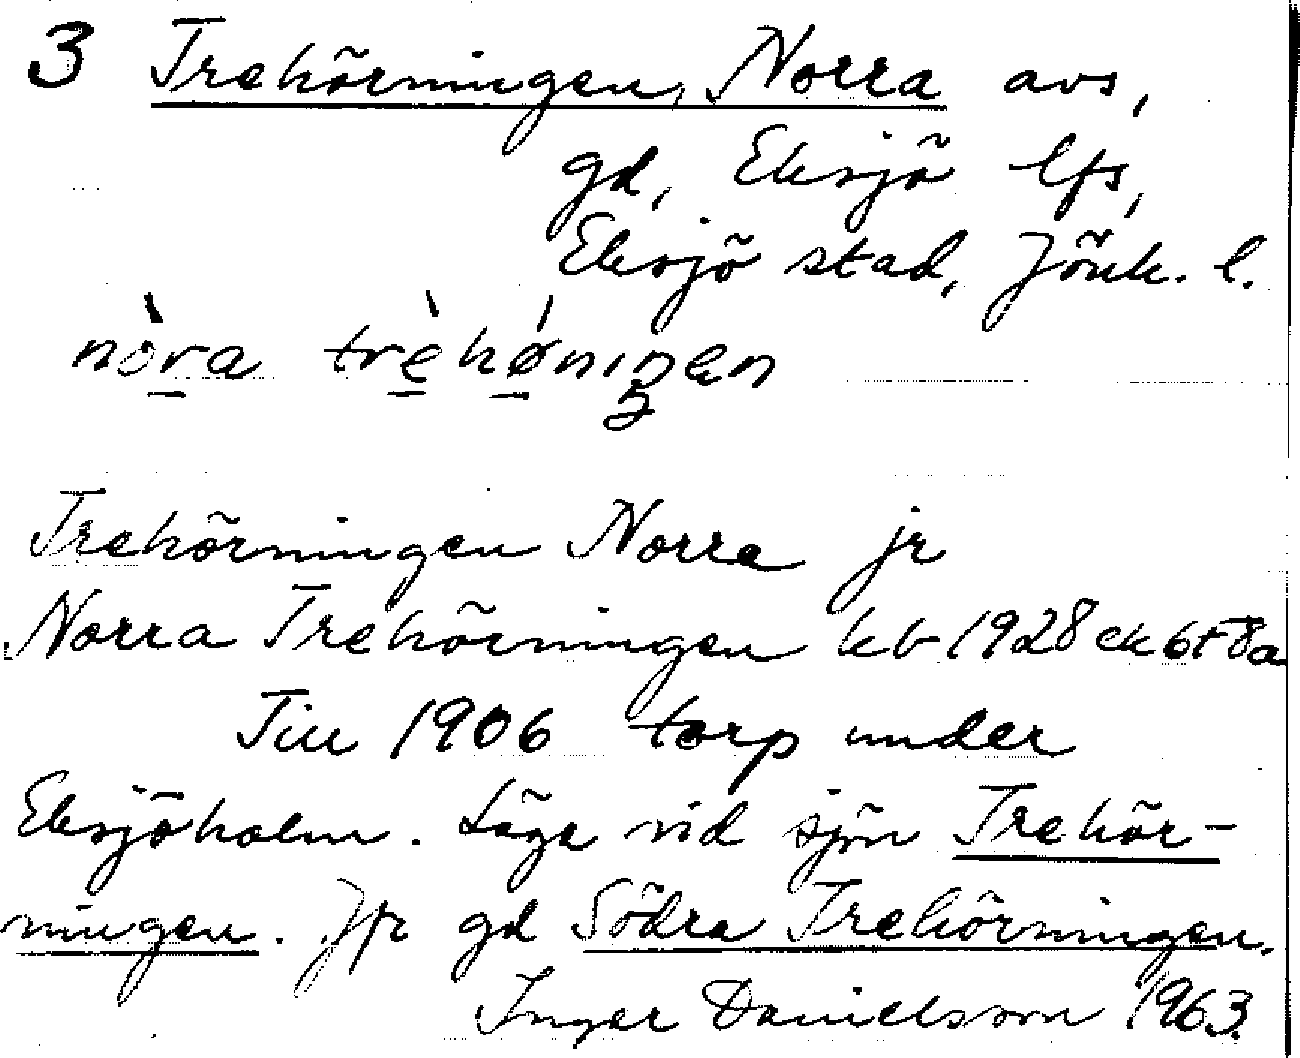 3 Trehörningen, Norra avs,
gd, Eksjö lfs,
Eksjö stad, Jönk. l.
nòra trèhǿningen
Trehörningen Norra jr
Norra Trehörningen kb 1928 ek 6f 8a
Till 1906 torp under
Eksjöholm. Läge vid sjön Trehör-
ningen. Jfr gd Södra Trehörningen.
Inger Danielsson 1963.